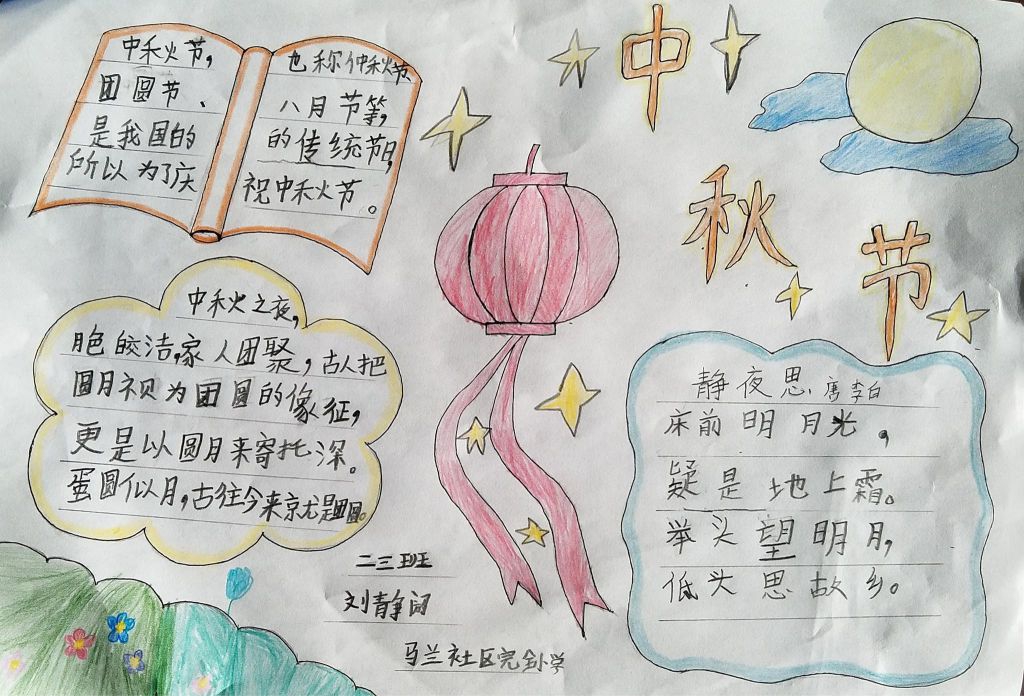 中秋节
中秋火节，
团圆节、
是我国的
所以为了庆
也称仲秋节
八月节等，
的传统节日，
祝中秋火节。
中秋火之夜，
皎洁，家人团聚，古人把
圆月视为团圆的像征，
更是以圆月来寄托深。
蛋圆似月，古往今来就是
静夜思 唐李白
床前明月光，
疑是地上霜。
举头望明月，
低头思故乡。
二三班
刘静
马兰社区完全小学